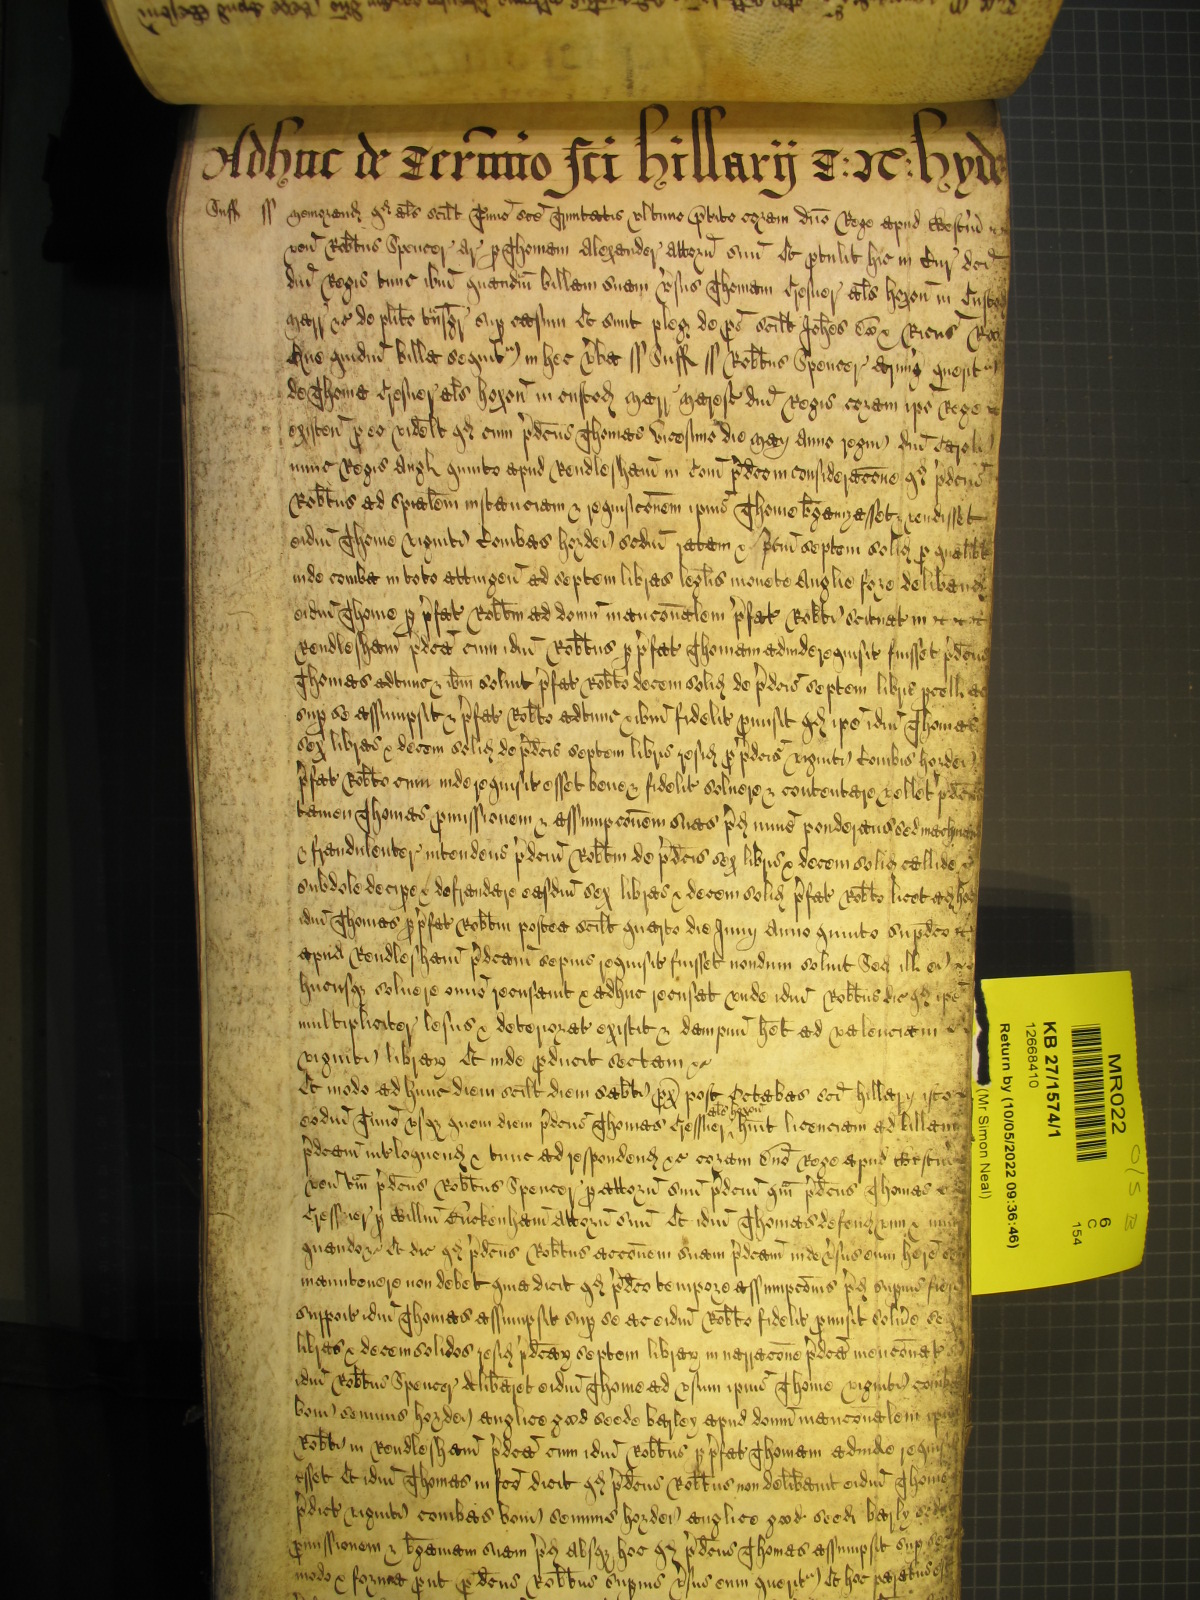 Adhuc de Termio Sci Hillarij T: R: Hyde
Suff ss Memorand qd als scilt Termio sce Trinitatis ultimo prito coram dno Rege apud Westm
ven Robtus Spencer Ar p Thomam Alexander Attorn suu Et ptulit hic in Cur dci
dni Regis tunc ibm quandm billam suam vsus Thomam Gesner als Hexon in Custod
Marr &c de plito tnsgr sup casum Et sunt pleg de ps scilt Johes Doo & Ricus Roo
Que quidm billa sequit in hec vba ss Suff ss Robtus Spencer armig querit
de Thoma Gesner als Hexon in custod Marr Maresc dni Regis coram ipo Rege
existen p eo videlt qd cum pdcus Thomas vicesimo die Maij Anno regni dni Caroli
nunc Regis Angl quinto apud Rendlesham in Com pdco in consideracone qd pdcus
Robtus ad spialem instanciam & requisiconem ipius Thome bganizasset & vendidisset
eidm Thome viginti Combas hordei scdm ratam & pciu septem solid p qualibt
inde comba in toto attingen ad septem libras leglis monete Anglie fore deliband
eidm Thome p pfat Robtm ad domu manconalem pfat Robti scituat in
Rendlesham pdca cum idm Robtus p pfat Thomam adinde requisit fuisset pdcus
Thomas adtunc & ibm solvit pfat Robto decem solid de pdcis septem libris pcell ac
sup se assumpsit & pfat Robto adtunc & ibm fidelit pmisit qd ipe idm Thomas
sex libras & decem solid de pdcis septem libris resid p pdcis viginti Combis hordei
pfat Robto cum inde requisit esset bene & fidelit solvere & contentare vellet pdcus
tamen Thomas pmissionem & assumpconem suas pd minie ponderans sed machinans
& fraudulenter intendens pdcm Robtm de pdcis sex libris & decem solid callide &
subdole decipe & defraudare easdm sex libras & decem solid pfat Robto licet ad hoc
idm Thomas p pfat Robtm postea scilt quarto die Junij Anno quinto supdco
apud Rendlesham pdcam sepius requisit fuisset nondum solvit Sed ill ei
hucusq solvere omio recusavit & adhuc recusat unde idm Robtus dic qd ipe
multipliciter lesus & deteriorat existit & dampnu het ad valenciam
viginti librar Et inde pducit sectam &c
Et modo ad hunc diem scilt diem Sabti px post Octabas sci Hillarij isto
eodm Termio usq quem diem pdcus Thomas Gessner als Hexon huit licenciam ad billam
pdcam intloquend & tunc ad respondend &c coram dno Rege apud Westm
ven tam pdcus Robtus Spencer p attorn suu pdcm qm pdcus Thomas
Gessner p Willm Cuckenham Attorn suu Et idm Thomas defend vim & iniur
quando &c Et dic qd pdcus Robtus acconem suam pdcam inde vsus eum here
manutenere non debet quia dicit qd pdco tempore assumpconis pd supius fieri
supposit idm Thomas assumpsit sup se ac eidm Robto fidelit pmisit solve sex
libras & decem solidos resid pdcar septem librar in narracone pdca menconat si
idm Robtus Spencer delibaret eidm Thome ad usum ipius Thome viginti combas
boni seminis hordei anglice good seede barley apud domu manconalem ipius
Robti in Rendlesham pdca cum idm Robtus p pfat Thomam adinde requisit
esset Et idm Thomas in fco dicit qd pdcus Robtus non delibavit eidm Thome
pdict viginti combas boni seminis hordei anglice good seede barly scdm
pmissionem & bganiam suam pd absq hoc qd pdcus Thomas assumpsit sup se
modo & forma put pdcus Robtus supius vsus eum querit Et hoc paratus est
MR022
6
C
154
KB 27/1574/1
12668410
Return by (10/05/2022 09:36:46)
(Mr Simon Neal)